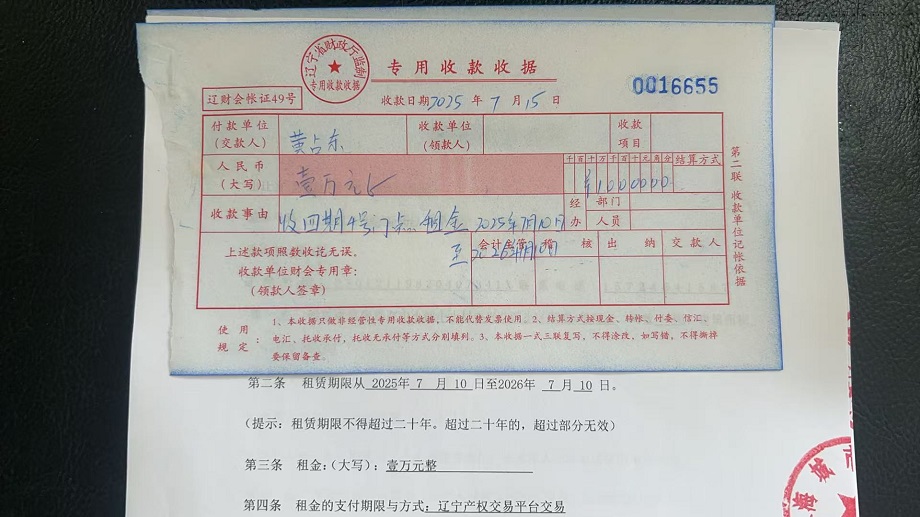 辽宁省财政厅监制
专用收款收据
专用收款收据
0016655
辽财会帐证49号
收款日期2025年7月15日
付款单位
(交款人)
黄占东
收款单位
(领款人)
收款
项目
人民币
(大写)
壹万元
千百十万千百十元角分
结算方式
¥1000000
收款事由
收四期4号门点租金 2025年7月10日
至2026年7月10日
经办
部门
人员
上述款项照数收讫无误。
收款单位财会专用章:
(领款人签章)
会计主管
稽核
出纳
交款人
第二联 收款单位记帐依据
使用
规定
:
1、本收据只做非经营性专用收款收据,不能代替发票使用。2、结算方式按现金、转帐、付委、信汇、
电汇、托收承付,托收无承付等方式分别填列。3、本收据一式三联复写,不得涂改,如写错,不得撕掉
要保留备查。
第二条 租赁期限从 2025年 7 月 10 日至2026年 7 月 10 日。
(提示:租赁期限不得超过二十年。超过二十年的,超过部分无效)
第三条 租金:(大写):壹万元整
第四条 租金的支付期限与方式:辽宁产权交易平台交易